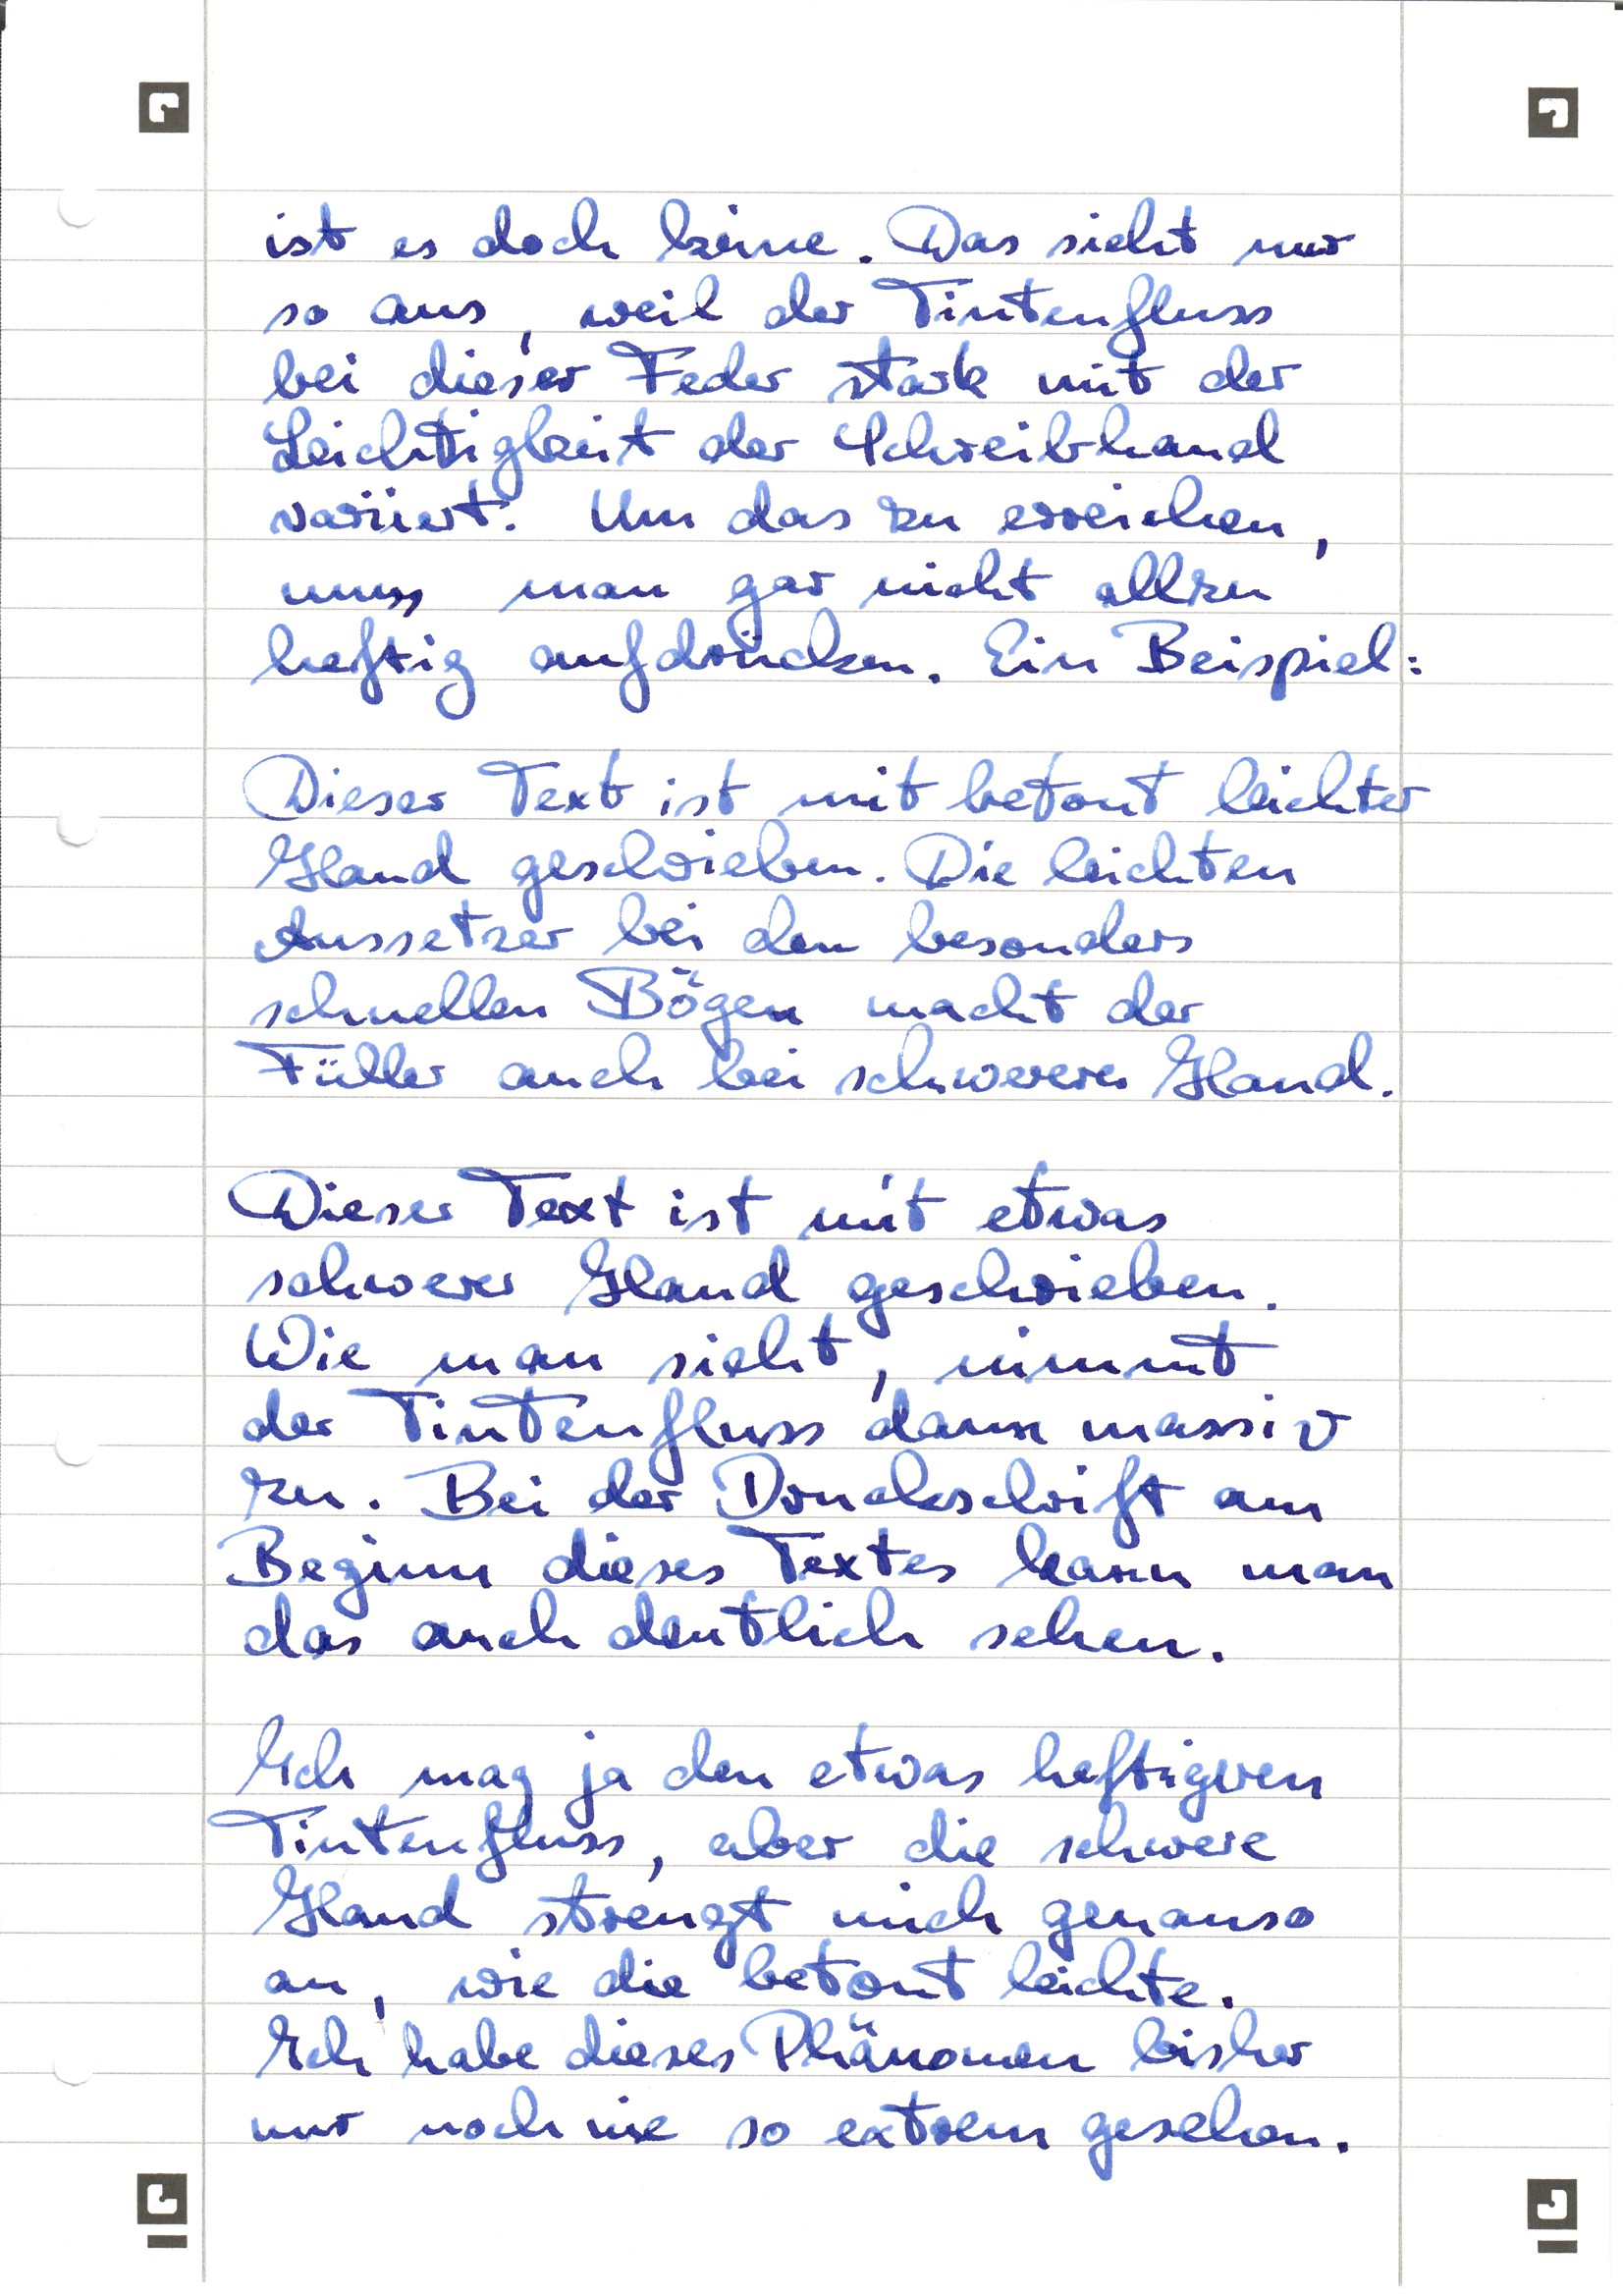 ist es doch keine. Das sieht nur
so aus, weil der Tintenfluss
bei dieser Feder stark mit der
Leichtigkeit der Schreibhand
variiert. Um das zu erreichen,
muss man gar nicht allzu
heftig aufdrücken. Ein Beispiel:
Dieser Text ist mit betont leichter
Hand geschrieben. Die leichten
Aussetzer bei den besonders
schnellen Bögen macht der
Füller auch bei schwerer Hand.
Dieser Text ist mit etwas
schwerer Hand geschrieben.
Wie man sieht, nimmt
der Tintenfluss dann massiv
zu. Bei der Druckschrift am
Beginn dieses Textes kann man
das auch deutlich sehen.
Ich mag ja den etwas heftigeren
Tintenfluss, aber die schwere
Hand strengt mich genauso
an, wie die betont leichte.
Ich habe dieses Phänomen bisher
nur noch nie so extrem gesehen.